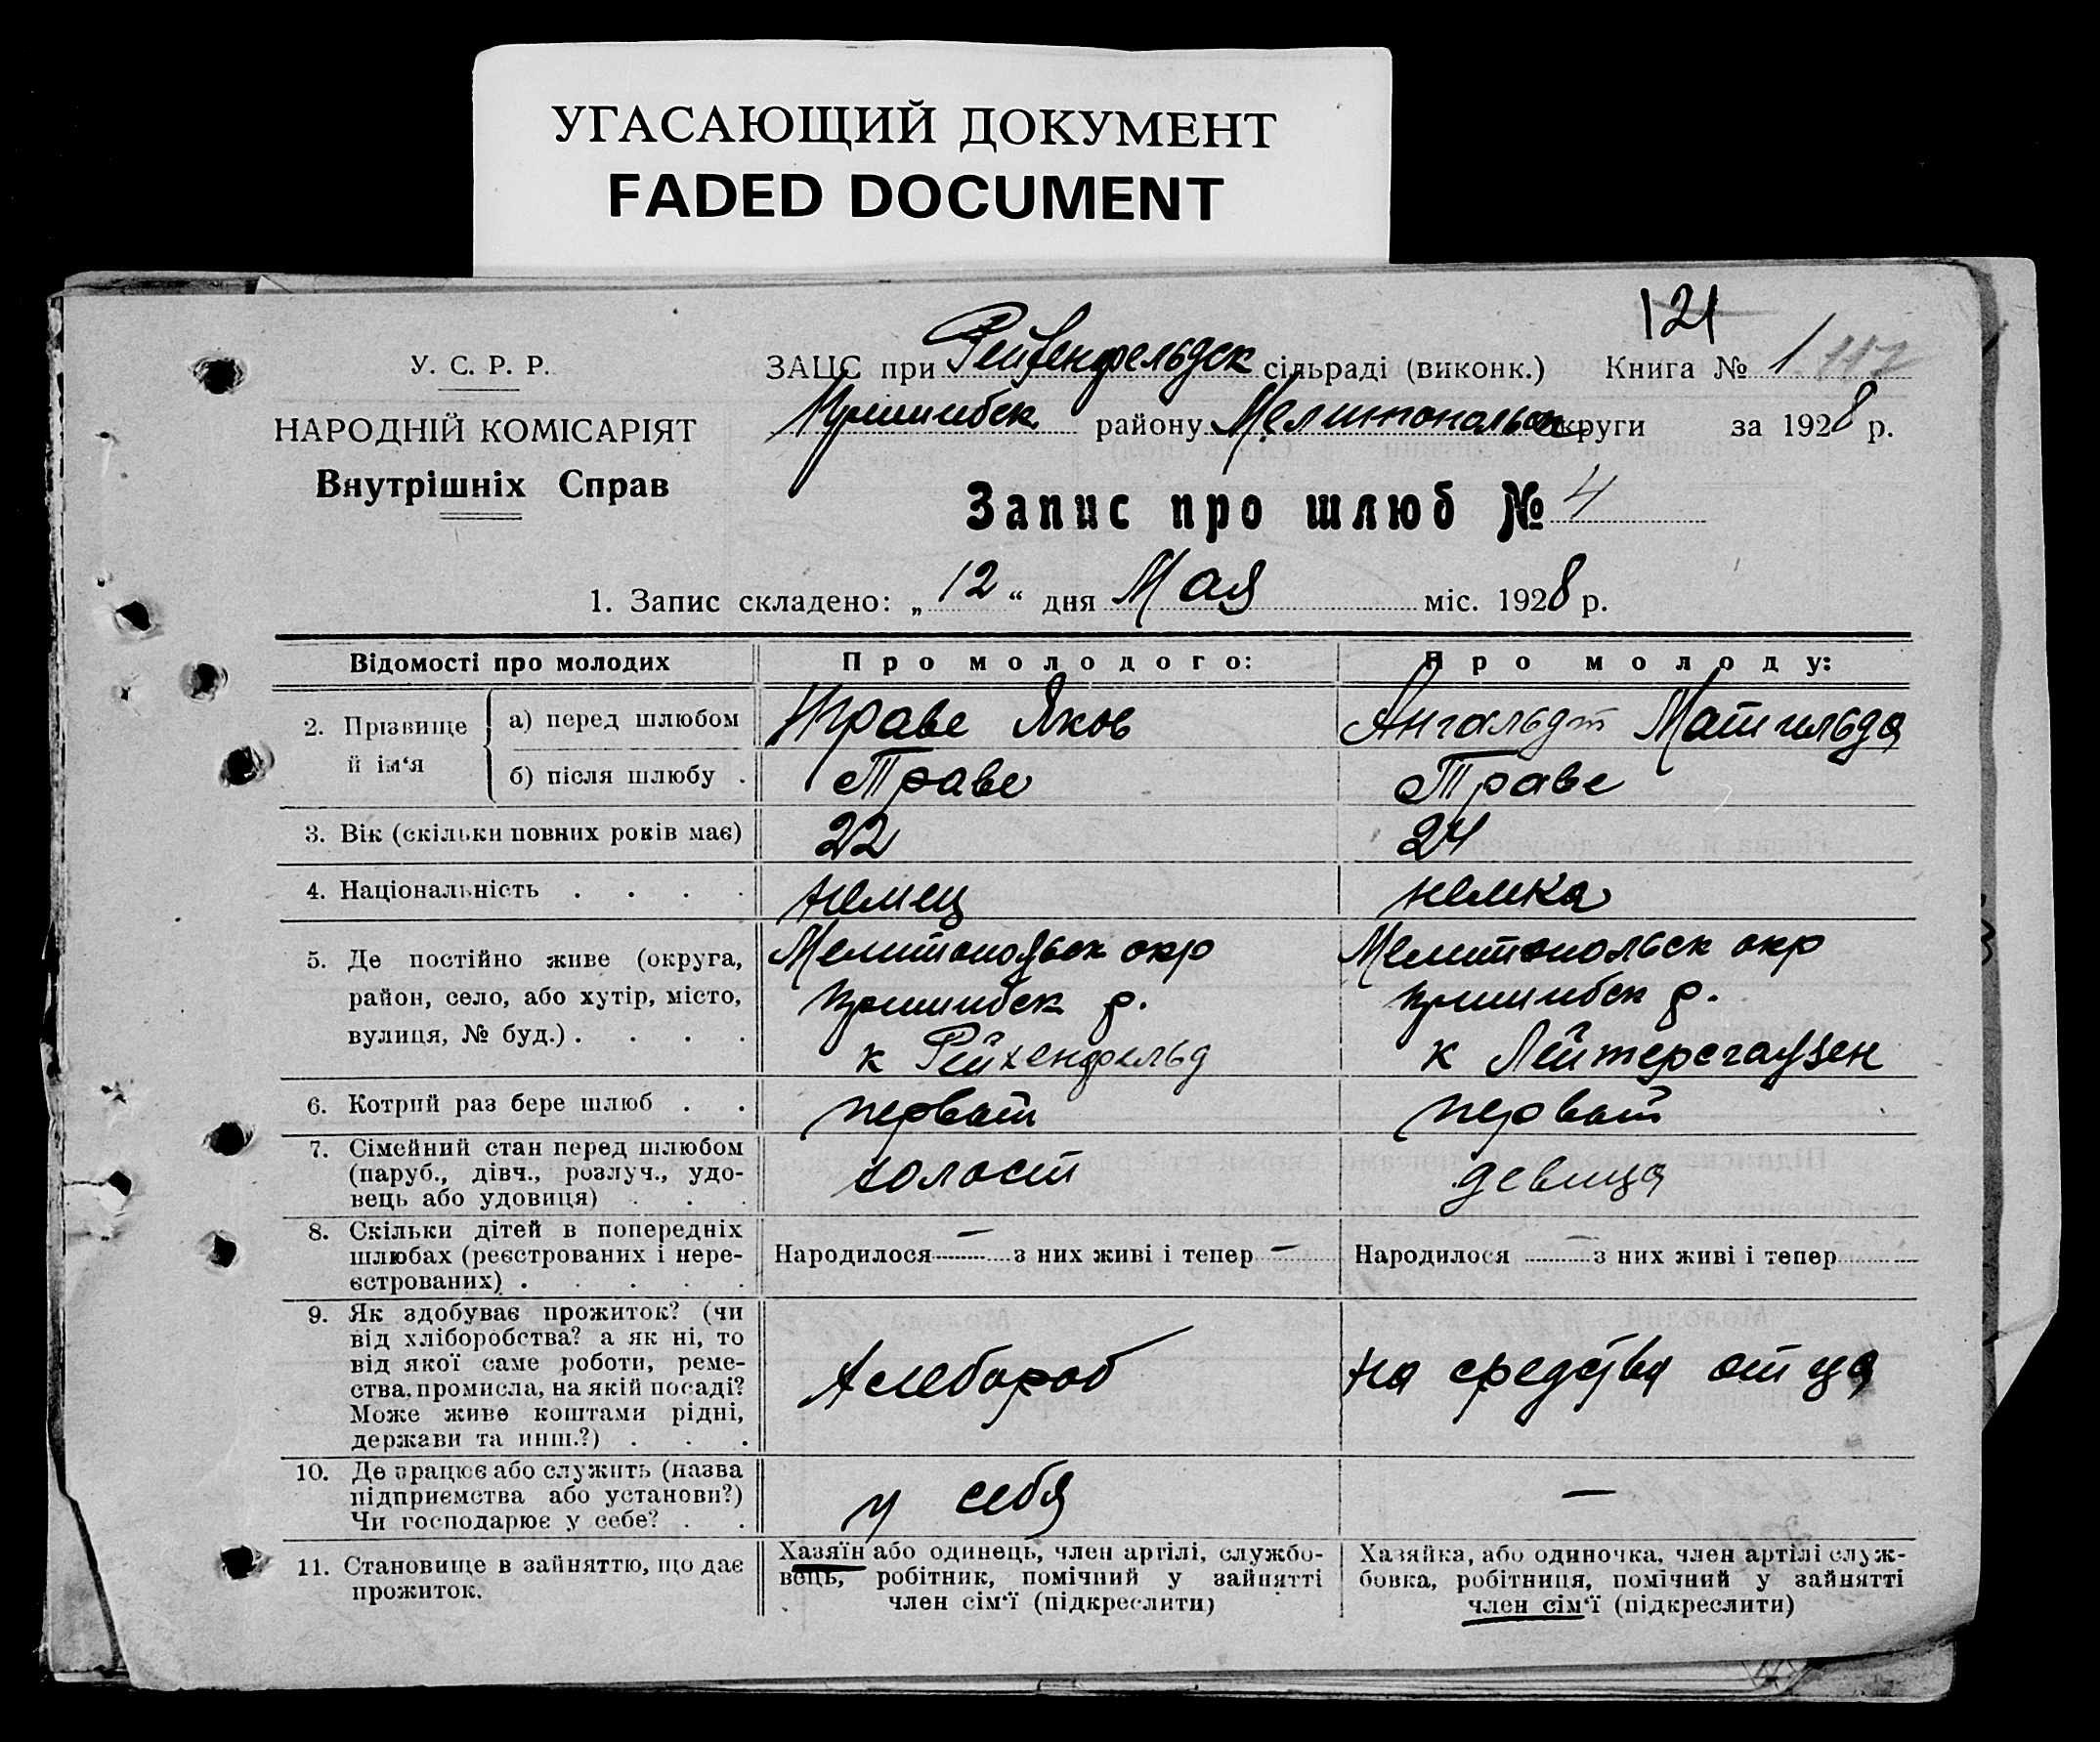 УГАСАЮЩИЙ ДОКУМЕНТ
FADED DOCUMENT
121
У. С. Р. Р.
ЗАЦС при Рейхенфельдск сільраді (виконк.) Книга № 1 117
НАРОДНІЙ КОМІСАРІЯТ
Пришибск району Мелитопольск округи за 1928 р.
Внутрішніх Справ
Запис про шлюб № 4
1. Запис складено: „12“ дня Мая міс. 1928 р.
Відомості про молодих
Про молодого:
Про молоду:
2. Прізвище й ім‘я
а) перед шлюбом
Траве Яков
Ангальдт Матильда
б) після шлюбу .
Траве
Траве
3. Вік (скільки повних років має)
22
24
4. Національність . . . .
немец
немка
5. Де постійно живе (округа,
район, село, або хутір, місто,
вулиця, № буд.) . . . .
Мелитопольск окр
Пришибск р.
к Рейхенфельд
Мелитопольск окр
Пришибск р.
к Лейтерсгаузен
6. Котрий раз бере шлюб . .
первый
первый
7. Сімейний стан перед шлюбом
(паруб., дівч., розлуч., удо-
вець або удовиця) . . .
холост
девица
8. Скільки дітей в попередніх
шлюбах (реєстрованих і нере-
єстрованих) . . . . .
Народилося — з них живі і тепер —
Народилося — з них живі і тепер
9. Як здобуває прожиток? (чи
від хліборобства? а як ні, то
від якої саме роботи, реме-
ства, промисла, на якій посаді?
Може живе коштами рідні,
держави та инш.?) . . .
Хлебороб
на средства отца
10. Де працює або служить (назва
підприємства або установи?)
Чи господарює у себе? . .
у себя
—
11. Становище в зайняттю, що дає
прожиток.
Хазяїн або одинець, член артілі, службо-
вець, робітник, помічний у зайнятті
член сім‘ї (підкреслити)
Хазяйка, або одиночка, член артілі служ-
бовка, робітниця, помічний у зайнятті
член сім‘ї (підкреслити)